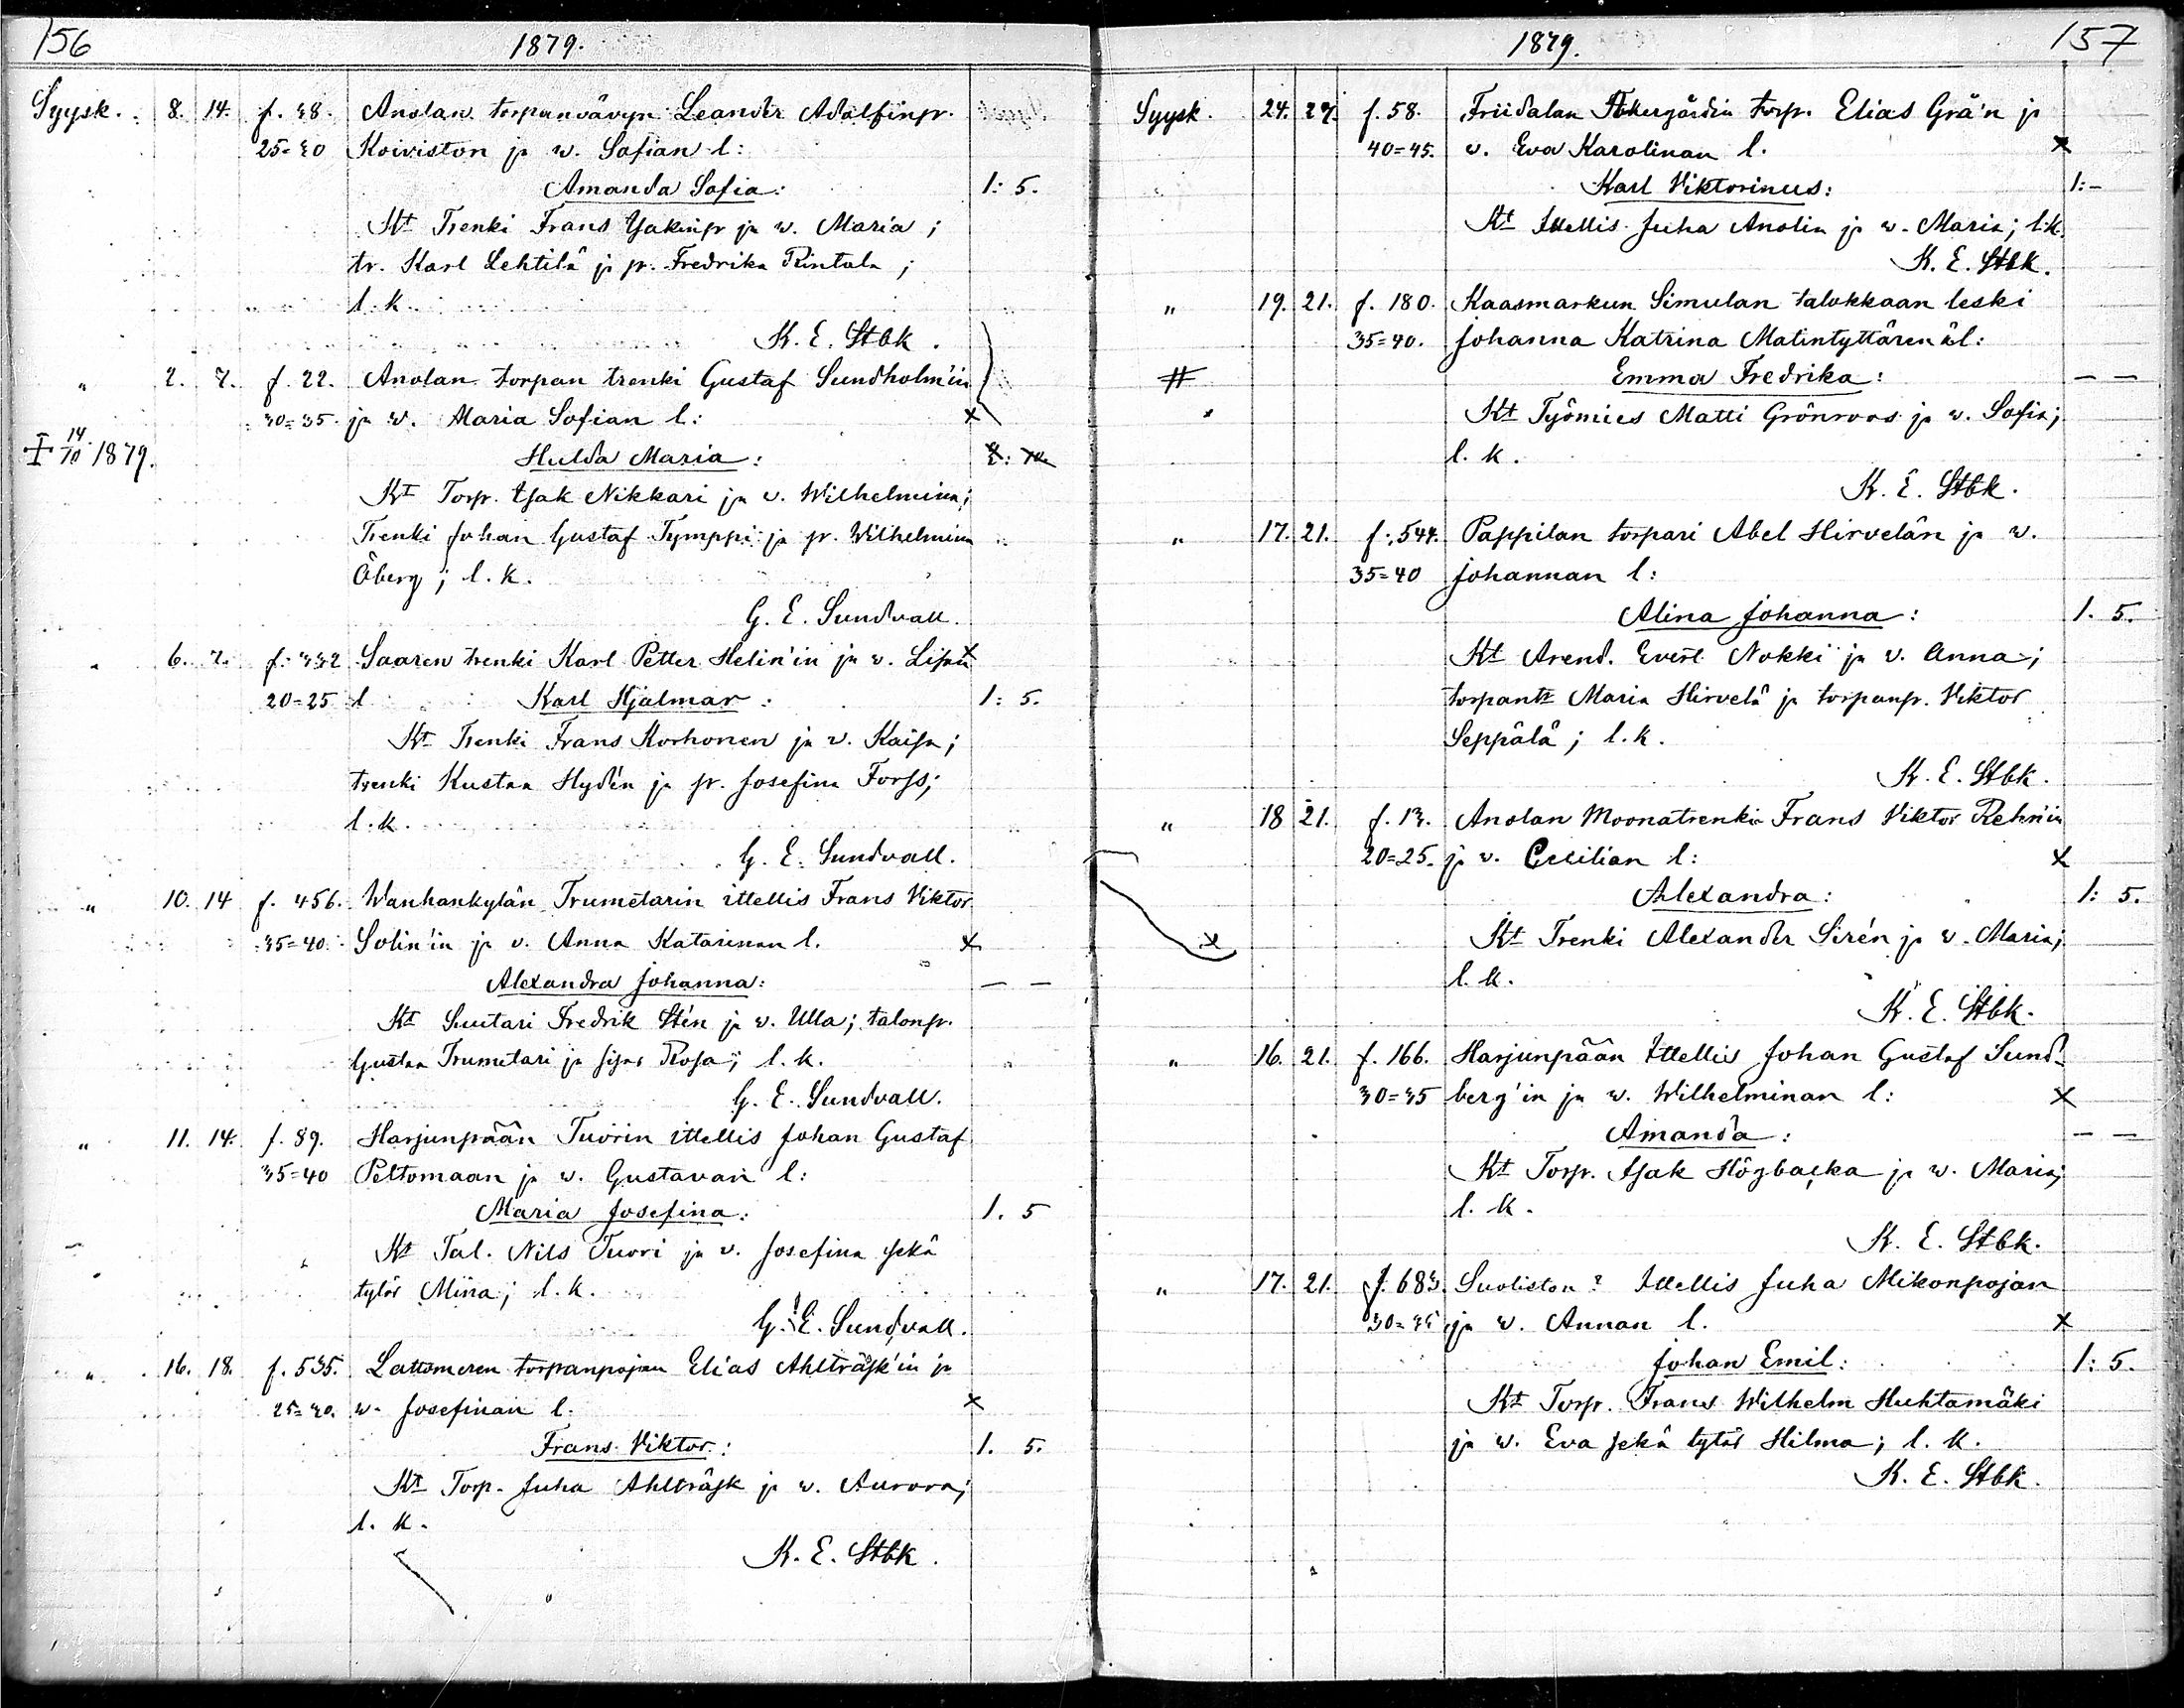 156
1879.
Syysk. 8. 14. f. 38. Anolan torpanvävyn Leander Adolfinpr.
25=30 Koiviston ja w. Sofian l:
Amanda Sofia: 1: 5.
Kt Trenki Frans Isakinpr ja w. Maria;
tr. Karl Lehtilä ja pr. Fredrika Rintala;
l. k.
K. E. Stbk.
" 2. 7. f. 22. Anolan torpan trenki Gustaf Sundholm'in
30=35 ja w. Maria Sofian l: x
14/10 1879. Hulda Maria:
Kt Torp. Isak Nikkari ja v. Wilhelmina;
Trenki Johan Gustaf Tymppi ja pr. Wilhelmina
Öberg; l. k.
G. E. Sundvall.
" 6. 7. f. 332 Saaren trenki Karl Petter Helin'in ja v. Lisan x
20=25 l Karl Hjalmar: 1: 5.
Kt Trenki Frans Korhonen ja v. Kaisa;
trenki Kustaa Hydén ja pr. Josefina Forss;
l. k.
G. E. Sundvall.
" 10. 14 f. 456. Wanhankylän Trumetarin ittellis Frans Viktor
35=40. Solin'in ja v. Anna Katarinan l. x
Alexandra Johanna: — —
Kt Suutari Fredrik Stén ja w. Ulla; talonpr.
Gustaa Trumetari ja sisar Rosa; l. k.
G. E. Sundvall.
" 11. 14. f. 89. Harjunpään Tuorin ittellis Johan Gustaf
35=40 Peltomaan ja w. Gustavan l:
Maria Josefina: 1. 5
Kt Tal. Nils Tuori ja v. Josefina sekä
tytär Miina; l. k.
G. E. Sundvall.
" 16. 18. f. 535. Lattomeren torpanpojan Elias Ahlträsk'in ja
25=30. w. Josefinan l. x
Frans Viktor: 1. 5.
Kt Torp. Juha Ahlträsk ja w. Aurora;
l. k.
K. E. Stbk.
1879.
157
Syysk. 24. 27. f. 58. Friidalan torp. Elias Grä'n ja
40=45. v. Eva Karolinan l. x
Karl Viktorinus: 1:-
Kt Ittellis Juha Anolin ja w. Maria; l. k.
K. E. Stbk.
" 19. 21. f. 180. Kaasmarkun Simulan talokkaan leski
35=40. Johanna Katrina Matintyttären äl:
# Emma Fredrika: — —
Kt Työmies Matti Grönroos ja w. Sofia;
l. k.
K. E. Stbk.
" 17. 21. f. 544. Pappilan torpari Abel Hirvelän ja w.
35=40 Johannan l:
Alina Johanna: 1. 5.
Kt Arend. Evert Nokki ja v. Anna;
torpantr Maria Hirvelä ja torpanpr. Viktor
Seppälä; l. k.
K. E. Stbk.
" 18 21. f. 13. Anolan Moonatrenki Frans Viktor Rehn'in
20=25. ja v. Cecilian l: x
Alexandra: 1: 5.
x Kt Trenki Alexander Sirén ja v. Maria;
l. k.
K. E. Stbk.
" 16. 21. f. 166. Harjunpään Ittellis Johan Gustaf Sund-
30=35 berg'in ja w. Wilhelminan l: x
Amanda: — —
Kt Torp. Isak Högbacka ja w. Maria;
l. k.
K. E. Stbk.
" 17. 21. f. 683. Suoliston? Ittellis Juha Mikonpojan
30=35 ja w. Annan l. x
Johan Emil: 1: 5.
Kt Torp. Frans Wilhelm Huhtamäki
ja w. Eva sekä tytär Hilma; l. k.
K. E. Stbk.